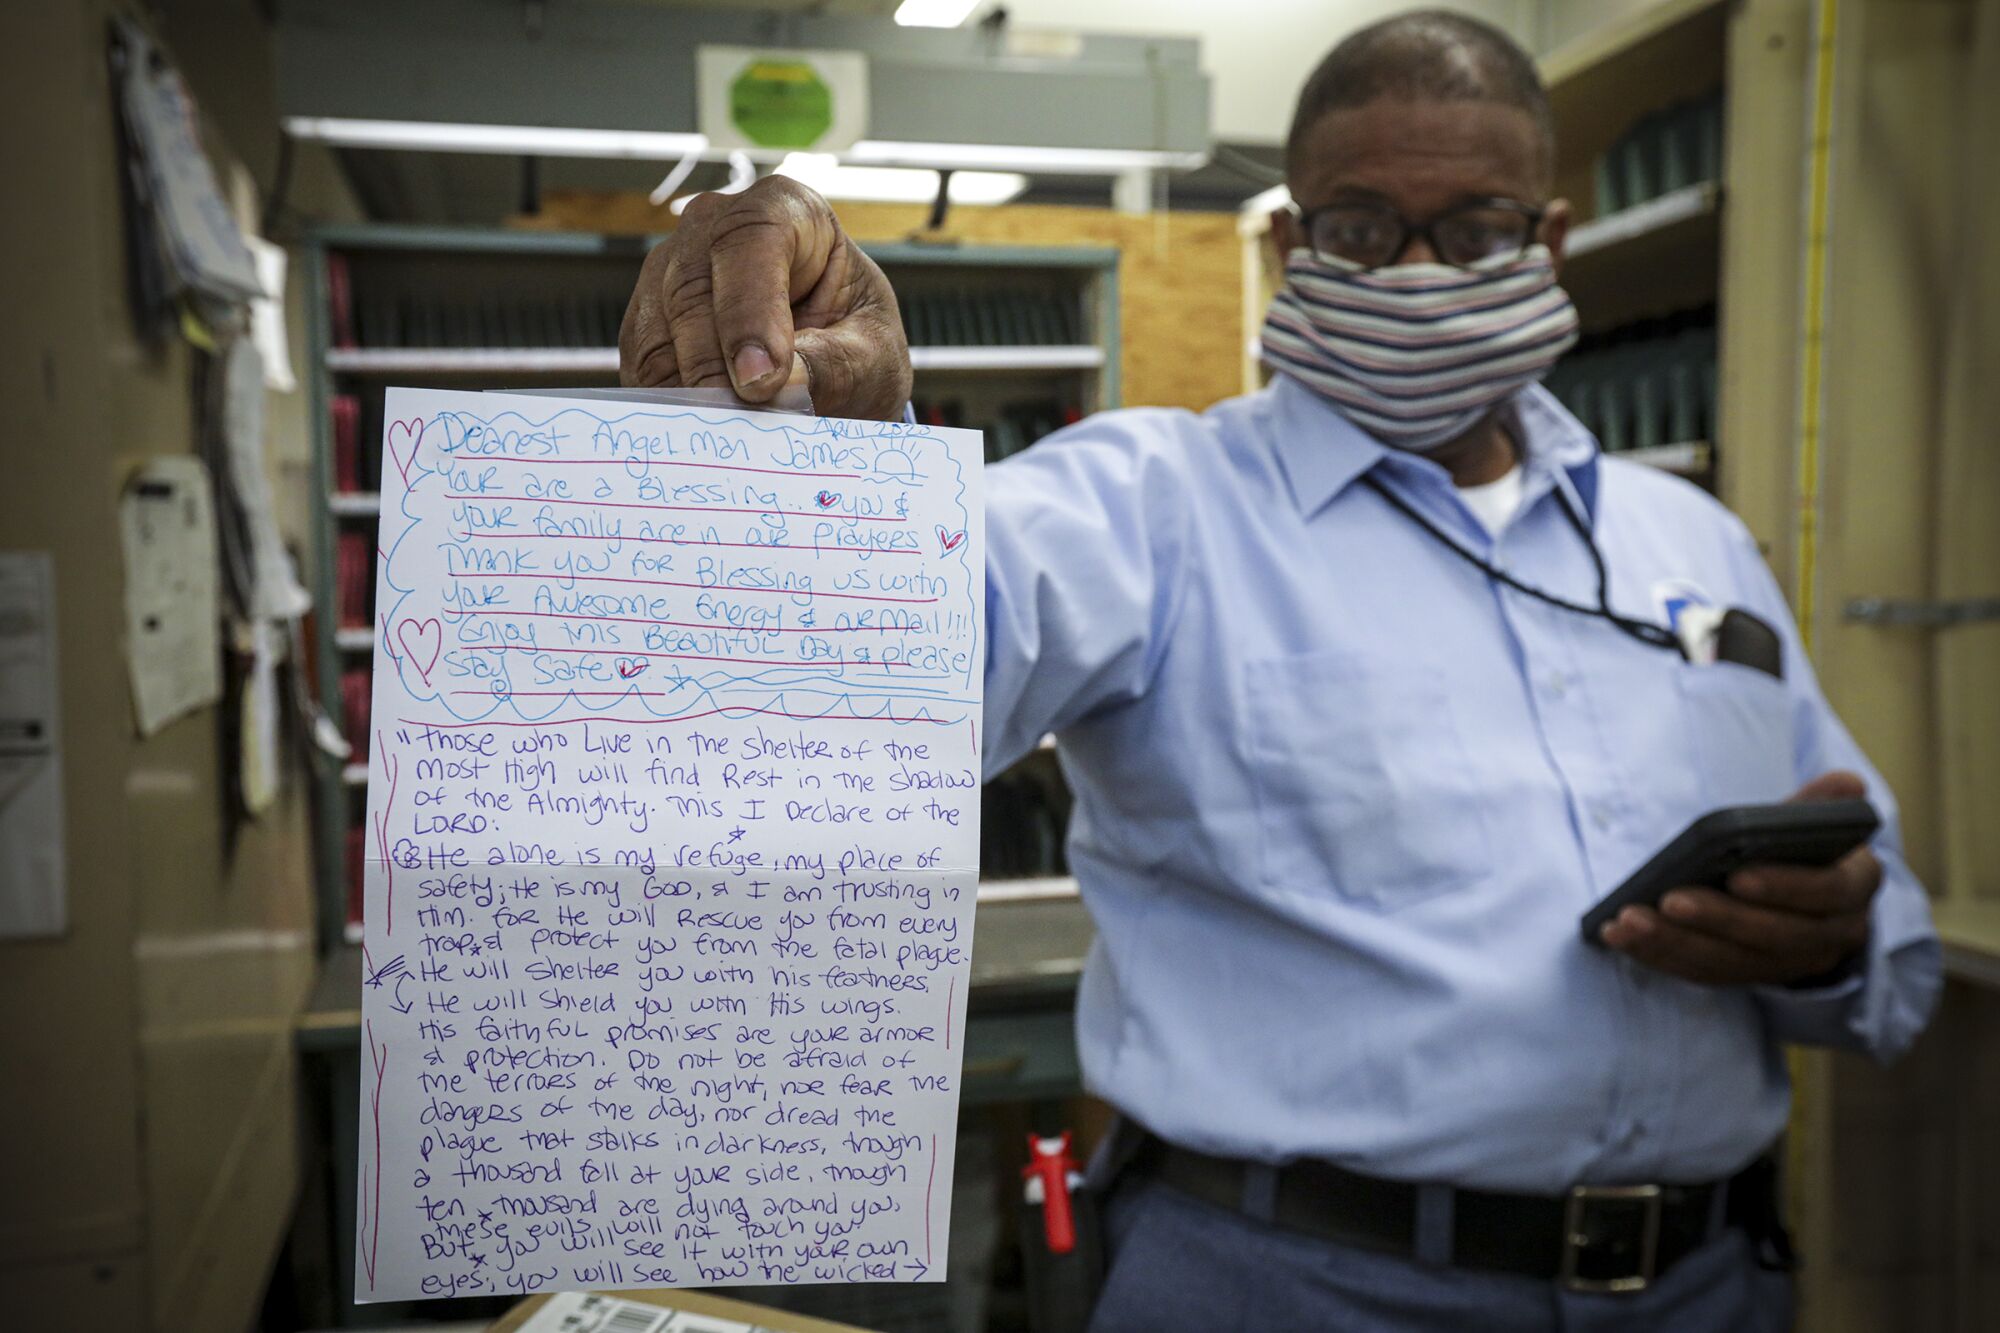 April 2020
Dearest Angel Man James
Your are a Blessing.. you &
your family are in our prayers
Thank you for Blessing us with
your Awesome Energy & our mail!!!
Enjoy this Beautiful Day & please
Stay Safe
"Those who Live in the shelter of the
most High will find Rest in the shadow
of the Almighty. This I Declare of the
LORD:
He alone is my refuge, my place of
safety; He is my GOD, & I am trusting in
Him. For He will Rescue you from every
trap & protect you from the fatal plague.
He will shelter you with his feathers,
He will shield you with His wings.
His faithful promises are your armor
& protection. Do not be afraid of
the terrors of the night, nor fear the
dangers of the day, nor dread the
plague that stalks in darkness, though
a thousand fall at your side, though
ten thousand are dying around you,
these evils will not touch you.
But you will see it with your own
eyes; you will see how the wicked →